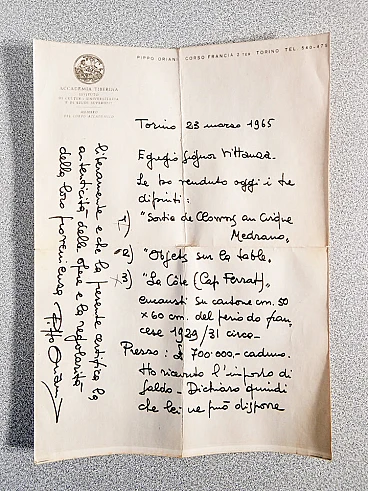 PIPPO ORIANI CORSO FRANCIA TORINO TEL.
ACCADEMIA TIBERINA
ISTITUTO
DI CULTURA UNIVERSITARIA
E DI STUDI SUPERIORI
Torino 23 marzo 1965
Egregio Signor Vittanza.
Le ho venduto oggi i tre
dipinti:
1) "Sortie de Clowns au Cirque
Medrano"
2) "Objets sur la table"
3) "La Côte (Cap Ferrat)"
encausti su cartone cm. 50
x 60 cm. del periodo fran
cese 1929/31 circa -
Prezzo: £ 700.000.- caduno.
Ho ricevuto l'importo di
saldo - Dichiaro quindi
che lei ne può disporre
liberamente e che la presente certifica la
autenticità delle opere e la regolarità
della loro provenienza. Pippo Oriani